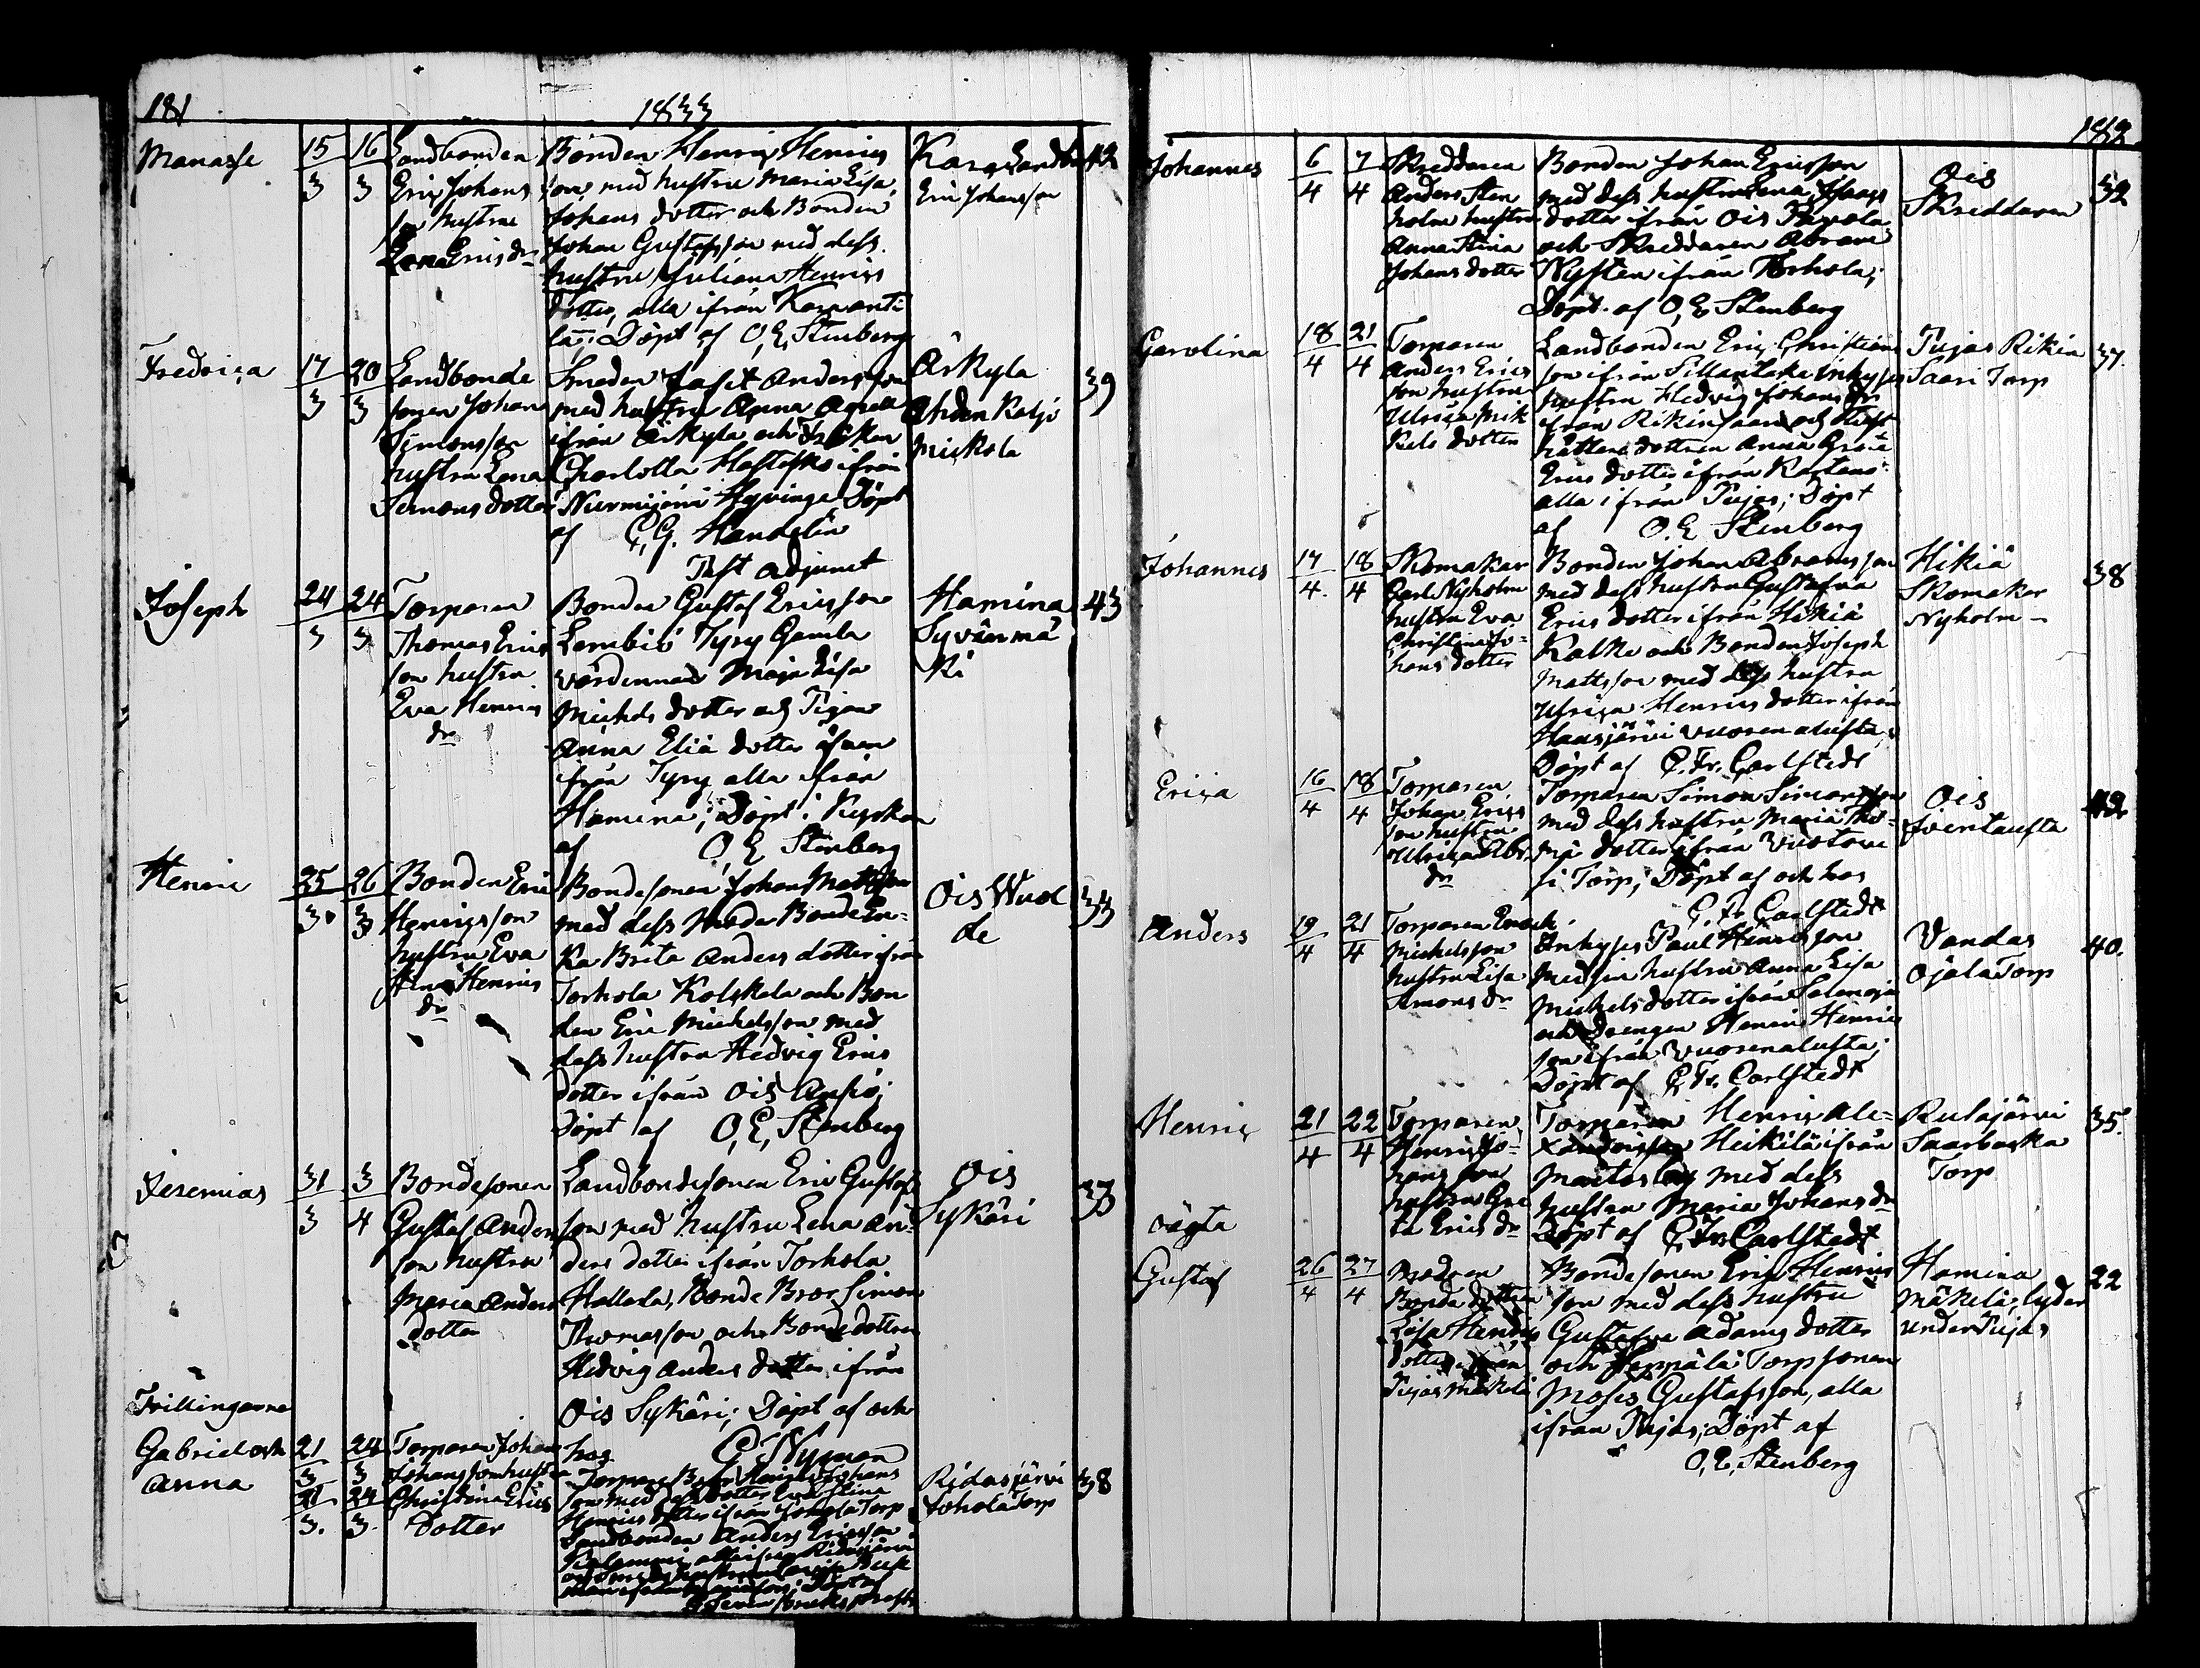 181
1833
Manasse
15 16
3 3
Landbonden
Eric Johans
son hustru
Lena Erics dr
Bonden Henric Henrics
son med hustru Maria Lisa
Johans dotter och Bonden
Johan Gustafsson med dess
hustru Juliana Henrics
dotter, alla ifrån Karanti
la; Döpt af O, E, Stenberg
Kara Landb
Eric Johansson
42
Fredrica
17 20
3 3
Landbonde
sonen Johan
Simonsson
hustru Lena
Simons dotter
Smeden Andersson
med hustru Anna
ifrån Ärkylä och Fröken
Charlotta ifrån
Hyvinge Döpt
af C, G. Handelin
Past adjunct
Ärkylä
Ahdenkaljo
Mickola
39
Joseph
24 24
3 3
Torparen
Thomas Erics
son hustru
Eva Henrics
dr
Bonden Gustaf Ericsson
Lembici Tyry Gamla
värdinnan Maja Lisa
Michels dotter och Pigan
Anna Eliä dotter äfven
ifrån Tyry alla ifrån
Hamina; Döpt i Kyrkan
af O, E, Stenberg
Hamina
Syvänmä
ki
43
Henric
25 26
3 3
Bonden Eric
Henricsson
hustru Eva
Henrics
dr
Bondesonen Johan Mattsson
med dess Moder Bonde En-
ka Brita Anders dotter ifrån
Torhola Kolskala och Bon
den Eric Michelsson med
dess hustru Hedvig Erics
dotter ifrån Ois Ansio;
Döpt af O, E, Stenberg
Ois Wuol
de
33
Jeremias
31 3
3 4
Bondesonen
Gustaf Anders
son hustru
Maria Anders
dotter
Landbondesonen Eric Gustafs
son med hustru Lena An-
ders dotter ifrån Torhola
Hallola, Bonde Bror Simon
Thomasson och Bondedottren
Hedvig Anders dotter ifrån
Ois Sykäri; Döpt af och
hos G Nyman
Ois
Sykäri
33
Tvillingarne
Gabriel och
Anna
21 24
3 3
21 24
3. 3.
Torparen Johan
Johansson hustru
Christina Erics
Dotter
Torpare Bror Johans
son med Stina
Henrics dotter ifrån Johola Torp
Landbonden Anders Ericsson
Ridasjärvi
Johola Torp
38
182
Johannes
6 7
4 4
Skreddaren
Anders Sten
holm hustru
Anna Stina
Johans dotter
Bonden Johan Ericsson
med dess hustru Lena Isaacs
dotter ifrån Ois
och Skreddaren Abram
Nysten ifrån Torhola;
Döpt af O, E Stenberg
Ois
Skreddaren
32
Carolina
18 21
4 4
Torparen
Anders Erics
son hustru
Ulrica Mik
kels dotter
Landbonden Eric Christians
son ifrån Sillantaka Inhyses
hustru Hedvig Johans dr
ifrån Rikinsaari och
hållare dottren Anna Greta
Erics dotter ifrån Kartano
alla ifrån Pujas; Döpt
af O. E Stenberg
Pujas Rikin
Saari Torp
37.
Johannes
17 18
4. 4
Skomakar
Carl Nyholm
hustru Eva
Christina Jo-
hans dotter
Bonden Johan Abramsson
med dess hustru Gustafva
Erics dotter ifrån Hikiä
Kalko och Bonden Joseph
Mattsson med dess hustru
Ulrica Henrics dotter ifrån
Hausjärvi Vuorenalusta;
Döpt af C. Fr. Carlstedt
Hikiä
Skomakar
Nyholm -
38
Erica
16 18
4 4
Torparen
Johan Erics
son hustru
Ulrica Abr.
dr
Torparen Simon Simonsson
med dess hustru Maria Tho-
mä dotter ifrån
Torp; Döpt af och hos
C. Fr. Carlstedt
Ois
42
Anders
19 21
4 4
Torparen Enoch
Michelsson
hustru Lisa
Simons dr
Inhyses Paul Henricsson
med sin hustru Anna Lisa
Michels dotter ifrån
och Drengen Henric Henrics
son ifrån Vuorenalusta;
Döpt af C, Fr. Carlstedt
Vandas
Ojala Torp
40.
Henric
21 22
4 4
Torparen
Henric Jo-
hans son
hustru Gre
ta Erics dr
Torparen Henric Ale-
xandersson Heikilä ifrån
med dess
hustru Maria Johans dr
Döpt af C, Fr. Carlstedt
Rutajärvi
Saarbacka
Torp
35.
oägta
Gustaf
26 27
4 4
Modren
Bonde dottren
Lisa Henrics
dotter ifrån
Pujas Mäkelä
Bondesonen Eric Henrics
son med dess hustru
Gustafva Adams dotter
och Seppälä Torp sonen
Moses Gustafsson, alla
ifrån Pujas; Döpt af
O, E, Stenberg
Hamina
Mäkelä, lyder
under Pujas
22